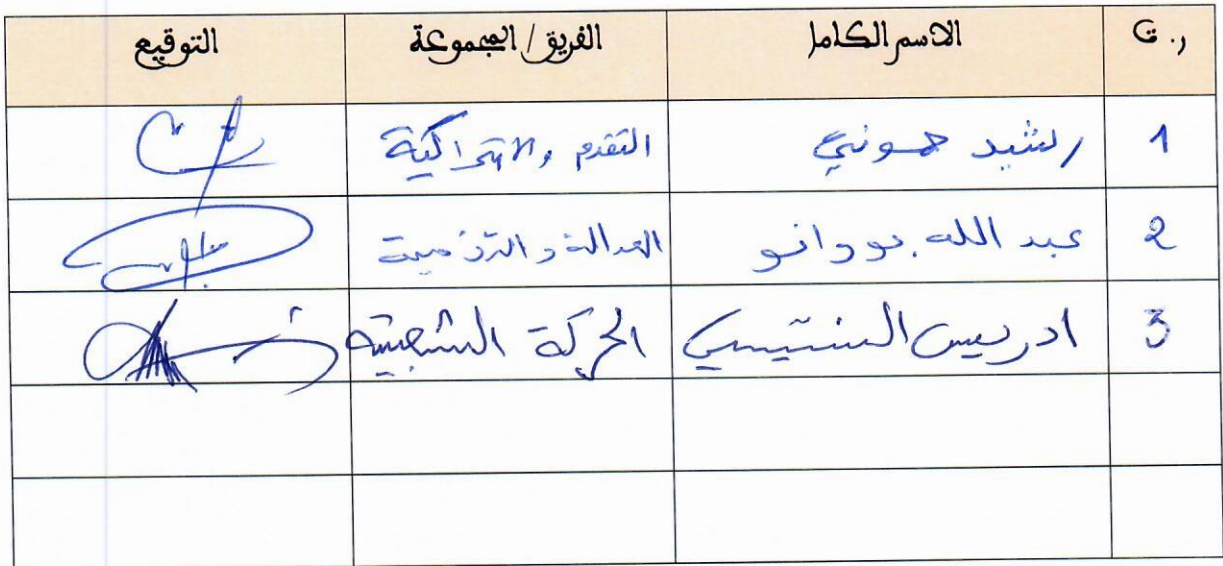 ر. ت الاسم الكامل الفريق/المجموعة التوقيع
1 رشيد حموني التقدم والاشتراكية
2 عبد الله بووانو العدالة والتنمية
3 ادريس السنتيسي الحركة الشعبية